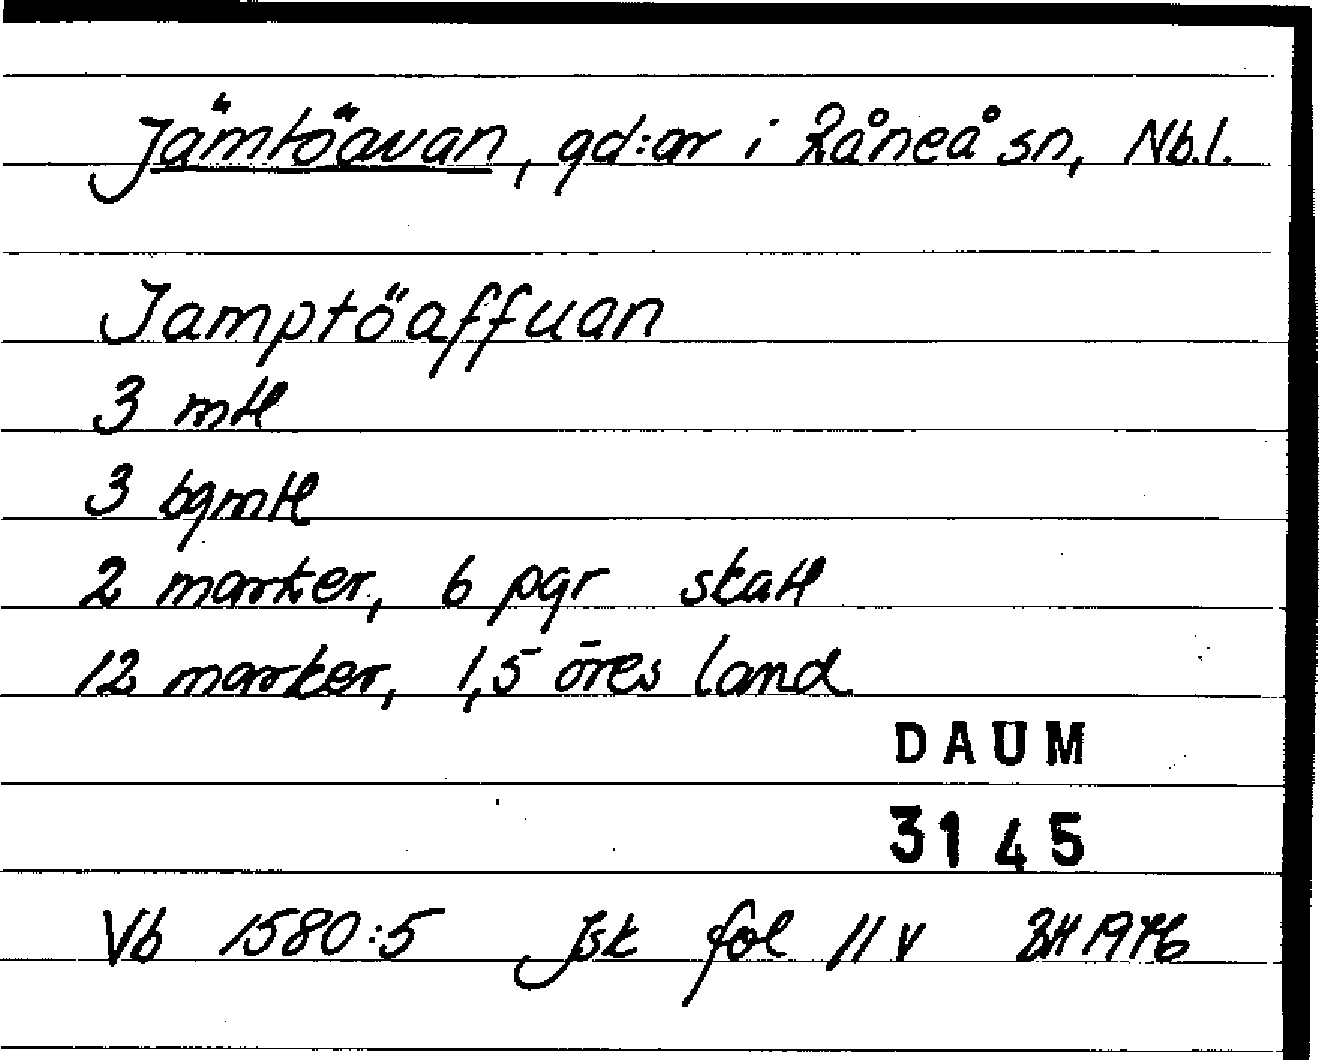 Jämtöavan, gd:ar i Råneå sn, Nb.l.
Jamptöaffuan
3 mtl
3 bgmtl
2 marker, 6 pgr skatt
12 marker, 1,5 öres land
DAUM
3145
Vb 1580:5 Jsk fol 11 v 1976